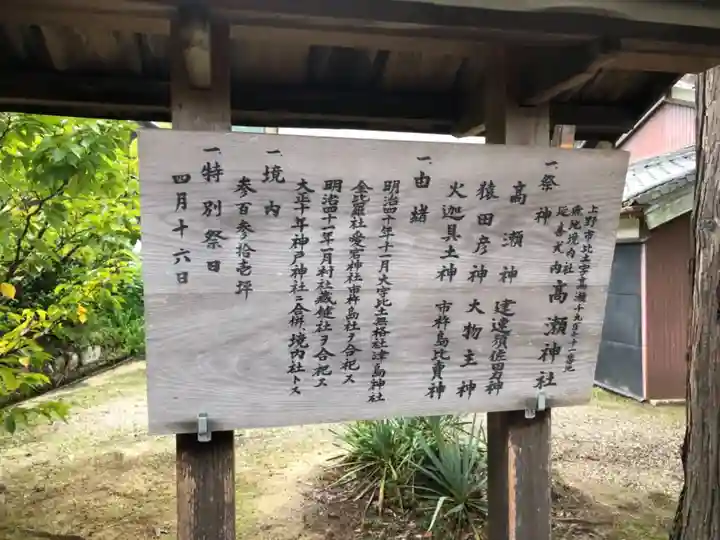 上野市比土字高瀬千九百七十一番地
飛地境内社
延喜式内 高瀬神社
一、祭神
高瀬神 建速須佐男神
猿田彦神 大物主神
火迦具土神 市杵島比賣神
一、由緒
明治四十年十一月大字比土無格社津島神社
金毗羅社愛宕神社市杵島社ヲ合祀ス
明治四十一年一月村社蔵縫社ヲ合祀ス
大正十年神戸神社ニ合併、境内社トス
一、境内
参百参拾壱坪
一、特別祭日
四月十六日